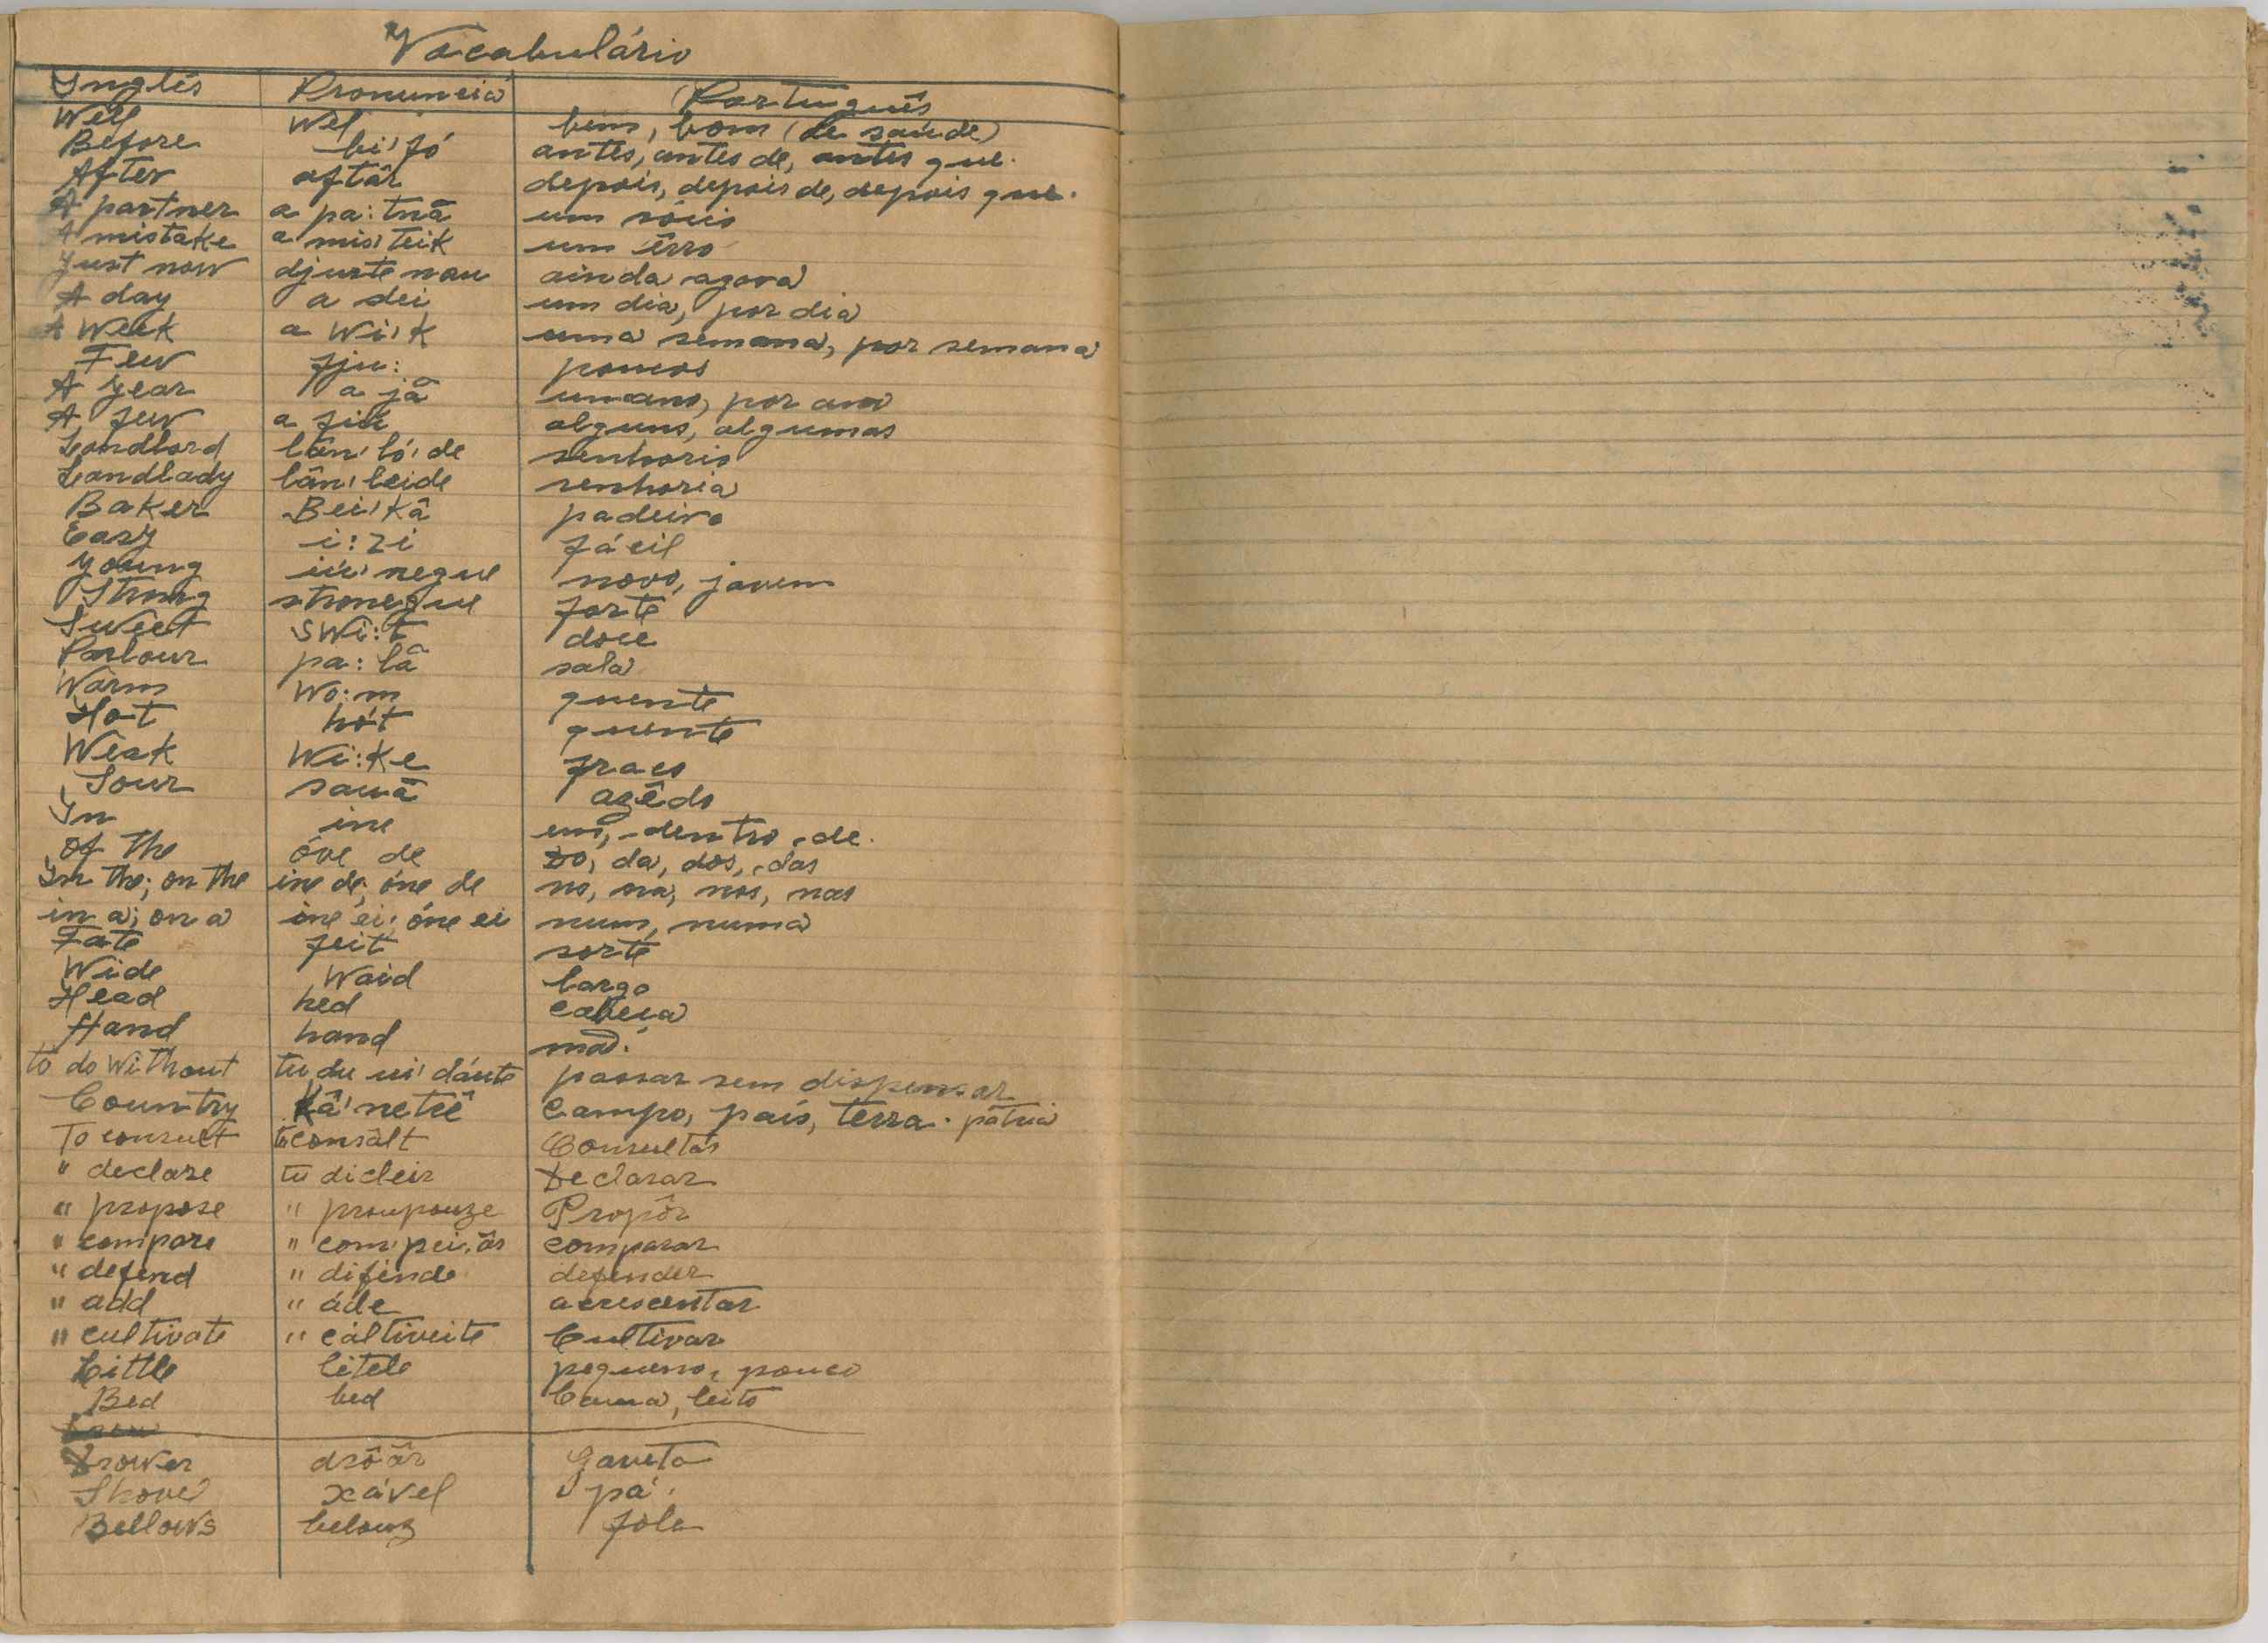 Vocabulário
Inglês Pronuncia Português
Well Wél bem, bom (de saúde)
Before bi'fó antes, antes de, antes que.
After aftâr depois, depois de, depois que.
A partner a pa:tnâ um sócio
A mistake a mis'teik um êrro
Just now djuste nau ainda agora
A day a dei um dia, por dia
A Week a Wi:k uma semana, por semana
Few fju: poucos
A year a jâ um ano, por ano
A few a fiú alguns, algumas
Landlord lân'ló'de senhorio
Landlady lân'leide senhoria
Baker Bei'kâ padeiro
Easy i:zi fácil
young iú'negue novo, jovem
Strong stronegue forte
Sweet SWi:t doce
Parlour pa:lâ sala
Warm Wo:m quente
Hot hót quente
Weak Wi:ke fraco
Sour sauâ azêdo
In ine em, dentro de.
of the óve de Do, da, dos, das
In the; on the ine de; óne de no, na, nos, nas
in a; on a ine ei; óne ei num, numa
Fate feit sorte
Wide Waid largo
Head hed cabeça
Hand hand mão.
to do Without tu du ui'dáute passar sem dispensar
Country Kâ'netrê Campo, país, terra. pátria
To consult tu consâlt Consultar
" declare tu dicleir Declarar
" propose " proupouze Propôr
" compare " com'pei.âr comparar
" defend " difende defender
" add " áde acrescentar
" cultivate " cáltiveite Cultivar
Little litele pequeno, pouco
Bed bed Cama, leito
Drower drôâr Gaveta
Shovel xável pá.
Bellows belouz fole